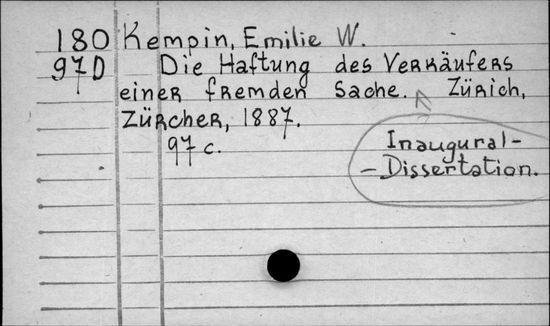 180 Kempin, Emilie W.
97D Die Haftung des Verkäufers
einer fremden Sache. Zürich,
Zürcher, 1887.
97 c.
Inaugural-
-Dissertation.